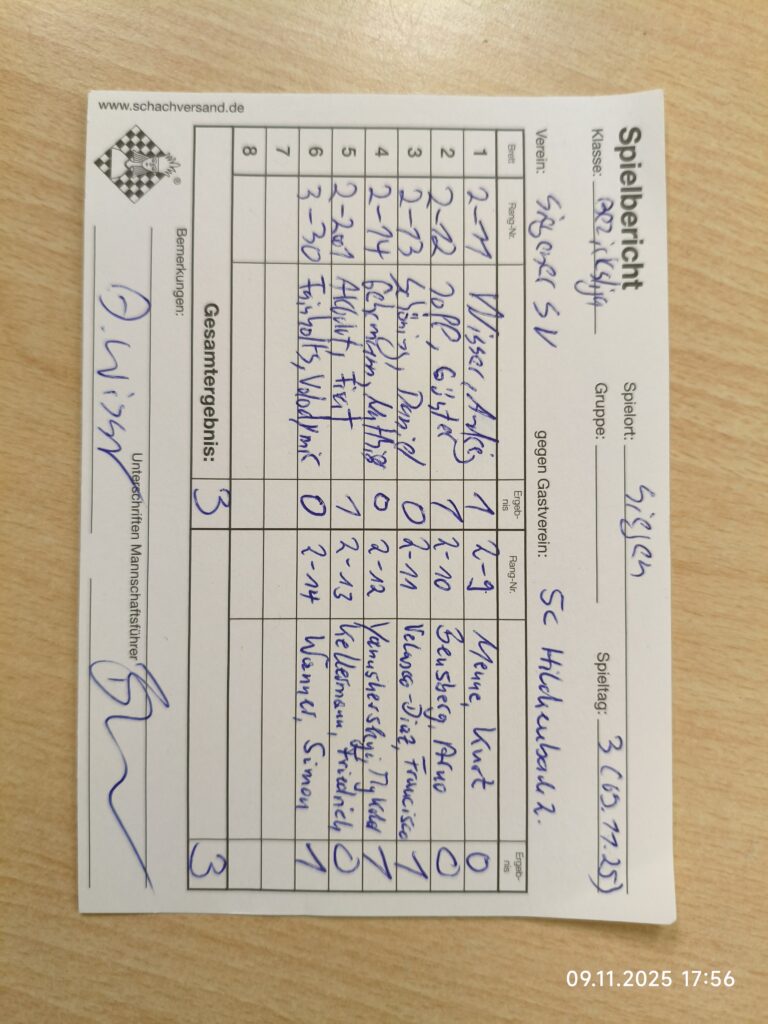 Spielbericht
Spielort: Siegen
Spieltag: 3 (09.11.25)
Klasse: Bezirksliga
Gruppe:
Verein: Siegener SV gegen Gastverein: SC Hilchenbach 2.
Brett Rang-Nr. Ergeb-nis Rang-Nr. Ergeb-nis
1 2-11 Wisser, 1 2-9 Menne, Kurt 0
2 2-12 Jopp, Günter 1 2-10 Bensberg, Arno 0
3 2-13 Daniel 0 2-11 Velasco-Diaz, Francisco 1
4 2-14 Gehrmann, 0 2-12 1
5 2-201 Akbulut, Firat 1 2-13 Kellermann, Friedrich 0
6 3-30 Fainholts, Volodymir 0 2-14 Wanner, Simon 1
7
8
Gesamtergebnis: 3 3
Bemerkungen:
A. Wisser
Unterschriften Mannschaftsführer
www.schachversand.de
®
09.11.2025 17:56